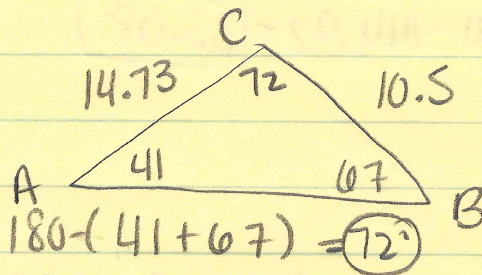 C
14.73 72 10.5
A 41 67 B
180-(41+67) = 72°